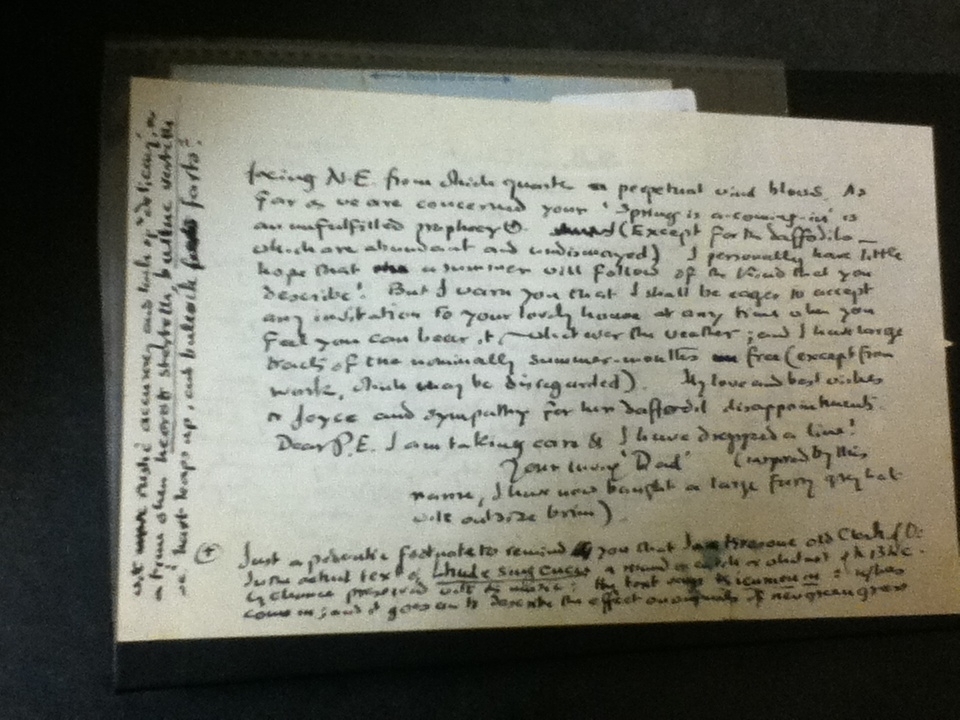 facing N.E. from which quarter a perpetual wind blows. As
far as we are concerned your 'Spring is a-coming-in' is
an unfulfilled prophecy (Except for the daffodils
which are abundant and undismayed) I personally have little
hope that a summer will follow of the kind that you
describe! But I warn you that I shall be eager to accept
any invitation to your lovely house at any time when you
feel you can bear it – whatever the weather; and I have large
tracts of the nominally summer-months free (except from
work, which may be disregarded). My love and best wishes
to Joyce and sympathy for her daffodil disappointments.
Dear P.E. I am taking care & I have dropped a line!
Your loving 'Dad' (inspired by this
name, I have now bought a large furry grey hat
with outsize brim)
+ Just a pedantic footnote to remind you that I am a tiresome old Clerk of Ox:
In the actual text of Lhude sing cucu a round or catch of the 13th C.
by chance preserved with its music: the text says is icumen in: 'has
come in; and it goes on to describe the effect on animals of new green grass
with rustic accuracy and lack of 'delicacy' in
a time when heorot sterteth, bulluc verteth
hart leaps up, and bullock farts'.